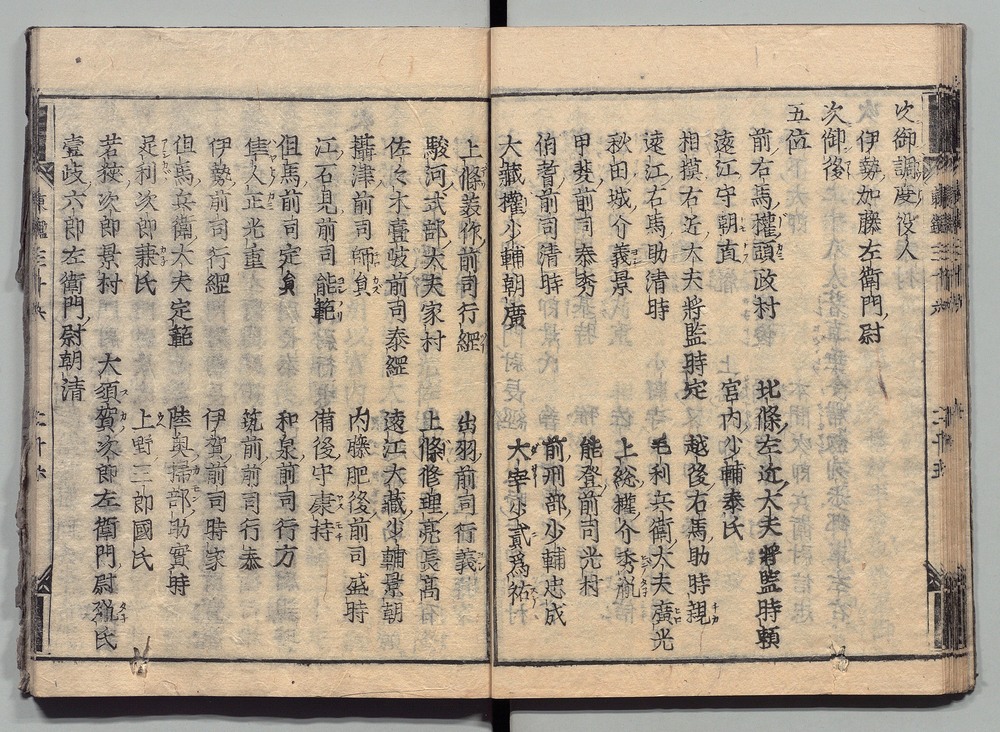 次御調度役人
伊勢加藤左衛門尉
次御後
五位
前右馬權頭政村　北條左近大夫將監時頼
遠江守朝直　宮内少輔泰氏
相摸右近大夫將監時定　越後右馬助時親
遠江右馬助清時　毛利兵衛大夫廣光
秋田城介義景　上総權介秀胤
甲斐前司泰秀　能登前司光村
伯耆前司清時　前刑部少輔忠成
大藏權少輔朝廣　大宰少貳爲佑
上條美作前司行經　出羽前司行義
駿河式部大夫家村　上條修理亮長高
佐々木壹岐前司泰經　遠江大藏少輔景朝
攝津前司師員　内藤肥後前司盛時
江石見前司能範　備後守康持
但馬前司定員　和泉前司行方
隼人正光重　筑前前司行泰
伊勢前司行經　伊賀前司時家
但馬兵衛大夫定範　陸奥掃部助實時
足利次郎兼氏　上野三郎國氏
若狭次郎景村　大須賀次郎左衛門尉胤氏
壹岐六郎左衛門尉朝清